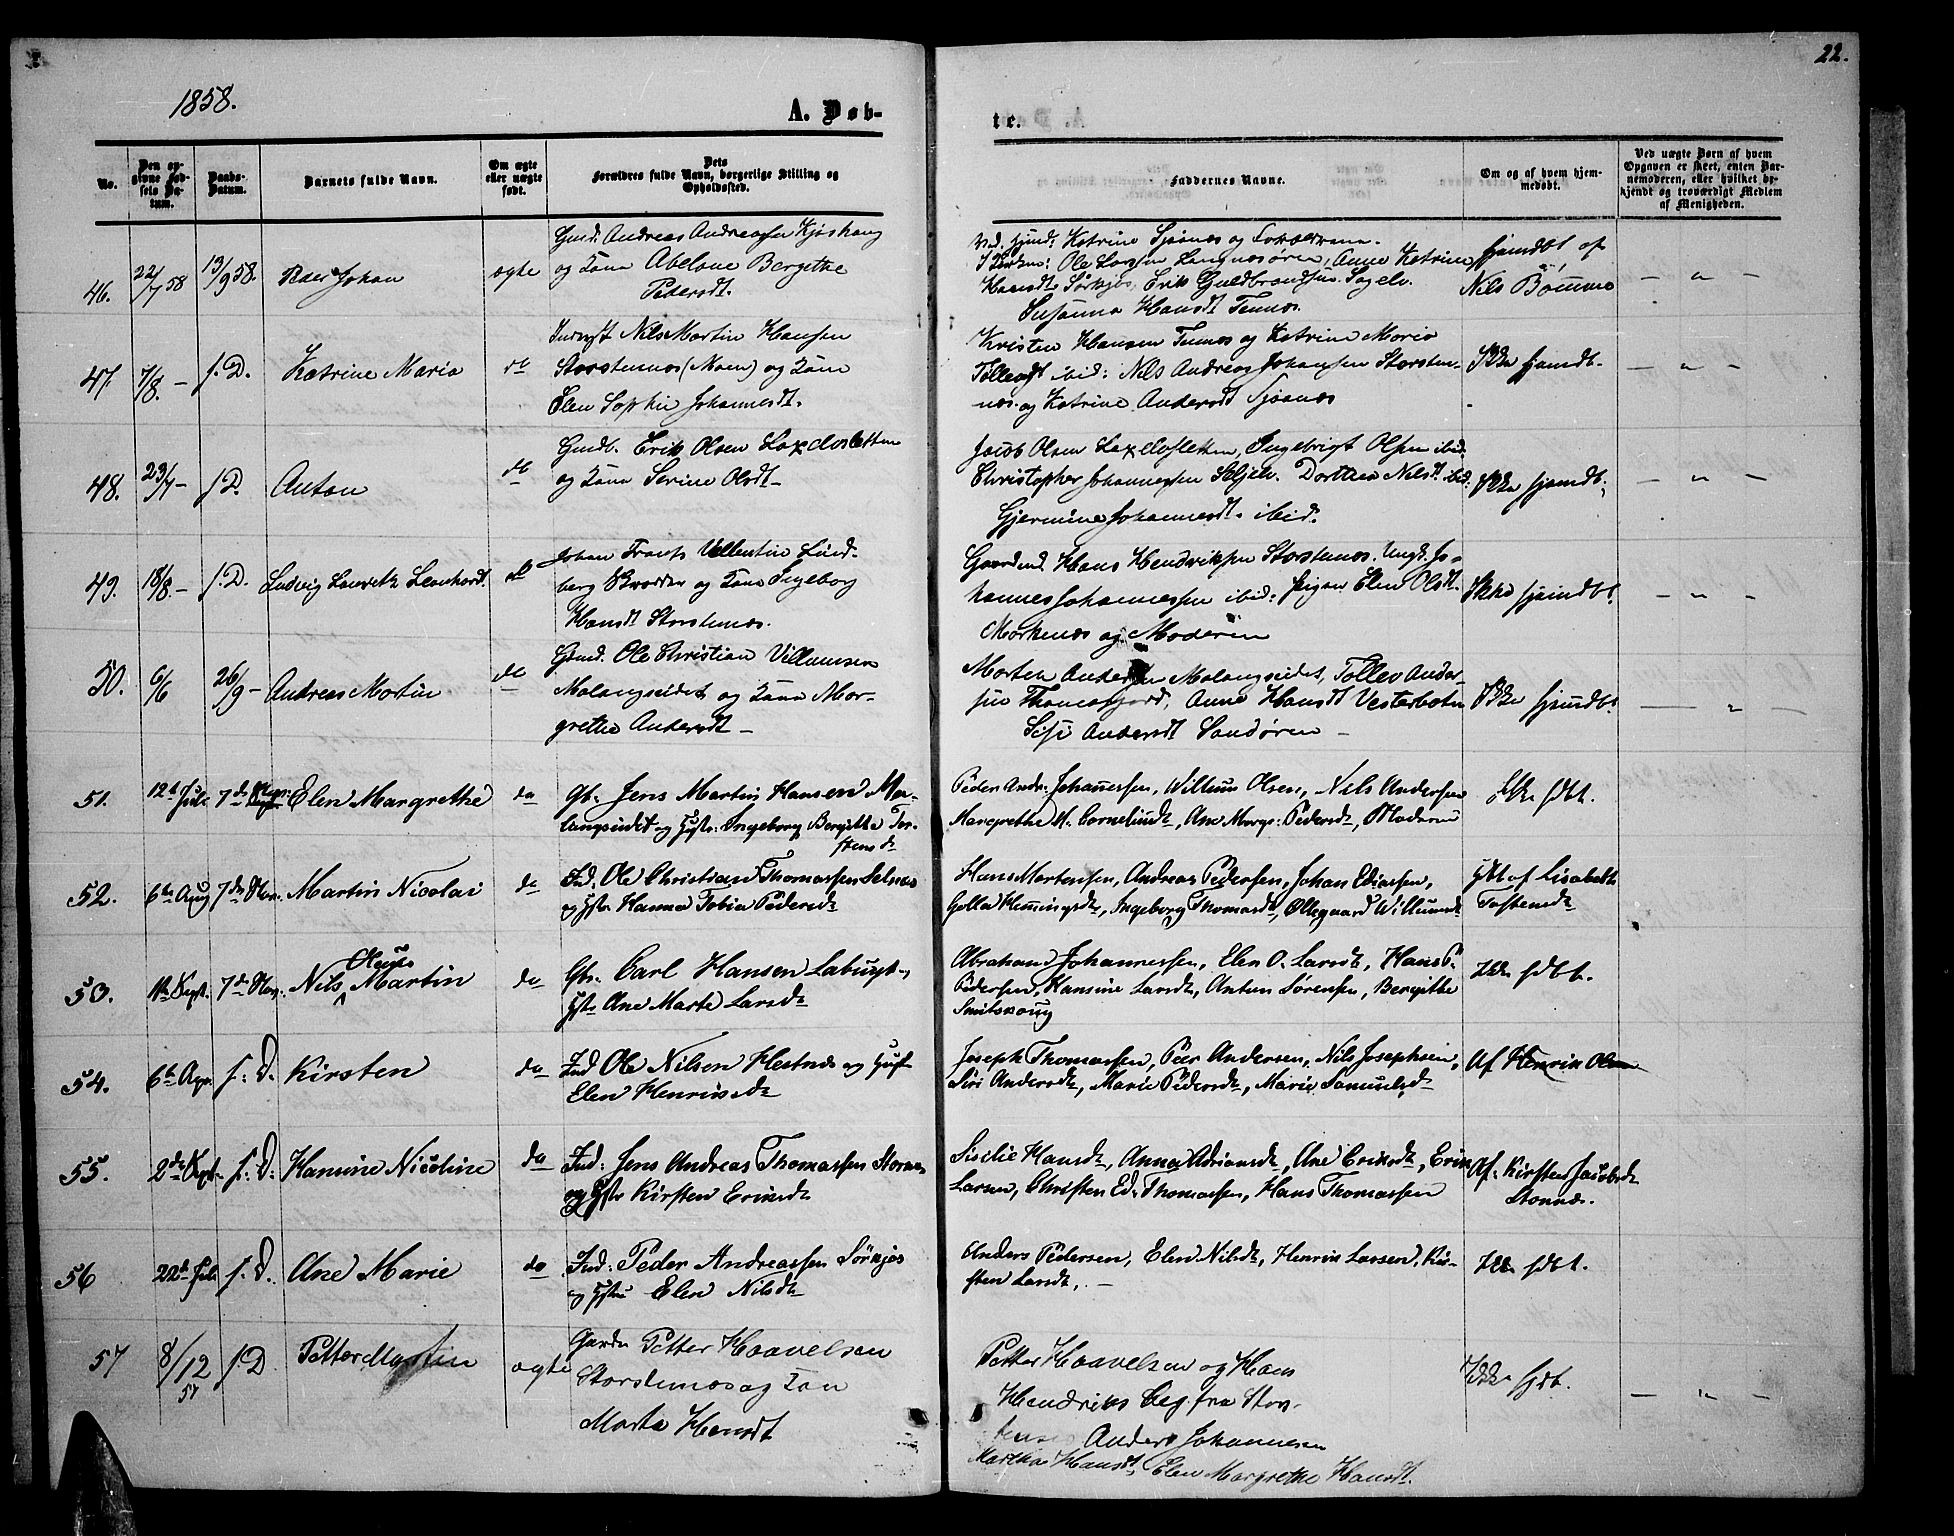 1858.
A. Døb-
te.
22.
No.
Den opgivne Fødsels Datum.
Daabs-Datum.
Barnets fulde Navn.
Om ægte eller uægte født.
Dets Forældres fulde Navn, borgerlige Stilling og Opholdssted.
Faddernes Navne.
Om og af hvem hjemmedøbt.
Ved uægte Børn af hvem Opgaven er skeet, enten Barnemoderen, eller hvilket bekjendt og troværdigt Medlem af Menigheden.
46. 22/7 58 13/9 58. Johan ægte
Gmd: Andreas Andreassen Kjøshaug
og Kone Abelone Bergithe
Pedersdt.
Katrine Sjøanæs og Forældrene.
I Kirken: Ole Larsen Langnæsøren, Anne Katrine
Hansdt Sørkjos, Erik Guldbrandssen Sagelv.
Susanna Hansdt Tennes.
hjemdbt af
Nils Bomme
— " —
47. 7/8. — s. D. Katrine Maria do
Inderst Nils Martin Hansen
Storstennæs (Moen) og Kone
Elen Sophie Johannesdt.
Kristen Hansen Tennes og Katrine Maria
Tollevsdt ibid: Nils Andreas Johansen Storsten-
næs. og Katrine Andersdt Sjøanæs
Ikke hjemdbt.
— " —
48. 23/7 — s D. Anton do
Gmdb. Erik Olsen Laxelvsletten
og Kone Serine Olsdt —
Jacob Olsen Laxelvsletten, Ingebrigt Olsen ibid.
Christopher Johannessen Seljelv. Dorthea Nilsdt ibid:
Gjermine Johannesdt. ibid.
Ikke hjemdbt.
— " —
49. 18/8. — s. D. Ludvig Lauritz Leonhard. do
Johan Frants Vallentin Lind-
berg og Kone Ingeborg
Hansdt Storstennæs.
Gaardmd. Hans Hendriksen Storstennæs. Ungk. Jo-
hannes Johannessen ibid: Pigen Elen Olsdt
Morkenæs og Moderen
Ikke hjemdbt.
— " —
50. 6/6 26/9 — Andreas Martin do
Gmd. Ole Christian Villumsen
Malangseidet og Kone Mar-
grethe Andersdt —
Morten Andersen Malangseidet, Tollev Ander-
sen Thomasjord, Anne Hansdt Vesterbotn
Sisi Andersdt Sandøren —
Ikke hjemdbt.
— " —
51. 12t Juli 7de Elen Margrethe do
Gb. Jens Martin Hansen Ma-
langseidet og Hstr: Ingeborg Bergitha Tor-
stensdt
Peder Andr: Johannessen, Willum Olsen, Nils Andersen
Margrethe M. Corneliusdt, Ane Margr: Pedersdt, Moderen
Ikke hdbt.
52. 6te Aug 7de Nov. Martin Nicolai do
Ind. Ole Christian Thomassen Selnæs
og Hstr. Hanna Tobia Pedersdt
Hans Mortensen, Andreas Pedersen, Johan Eliassen,
Golla Hemmingsdt, Ingeborg Thomasdt, Ollegaard Willumsdt
hdbt af Lisabeth
Tostensdt
53. 14t Sept. 7de Nov. Nils Olaus Martin do
Gb. Carl Hansen Labugt og
Hstr Ane Marte Larsdt
Abraham Johannessen, Elen O. Larsdt, Hans P.
Pedersen, Hansine Larsdt, Anton Sørensen, Bergitte
Smitskoug
Ikke hdbt.
54. 6te Apr. s. D. Kirsten do
Ind Ole Nilsen Hestnæs og Hust
Elen Henriksdt
Joseph Thomassen, Peer Andersen, Nils Josephsen,
Siri Andersdt, Marie Pedersdt, Marie Samuelsdt
Af Henrik Olsen
55. 2de Sept. s. D: Hansine Nicoline do
Ind: Jens Andreas Thomassen Stornæs
og Hstr Kirsten Eriksdt
Sisilie Hansdt, Anna Adriansdt, Ane Eriksdt, Erik
Larsen, Christen Ed. Thomassen, Hans Thomassen
Af: Kirsten Jacobsdt
Stornæs.
56 22t Juli s. D. Ane Marie do
Ind: Peder Andreassen Sørkjos
og Hstr Elen Nilsdt
Anders Pedersen, Elen Nilsdt, Henrik Larsen, Kir-
sten Larsdt, . —
Ikke hdbt.
57 8/12 57 s. D Petter Martin ægte
Gardm Petter Haavelsen
Storstennæs og Kon
Marta Hansdt
Petter Haavelsen og Hans
Hendriks beg. fra Stor-
Anders Johannesen
Martha Hansdt, Elen Margrethe Hansdt.
Ikke hjdt.
— " —